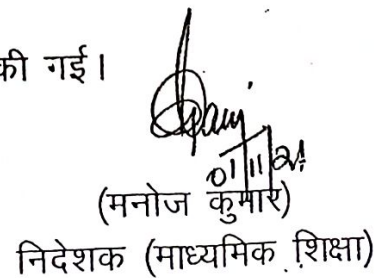 की गई।
01/11/21
(मनोज कुमार)
निदेशक (माध्यमिक शिक्षा)